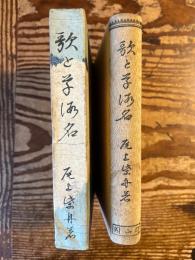 歌と草仮名
尾上柴舟著
歌と草仮名
尾上柴舟著